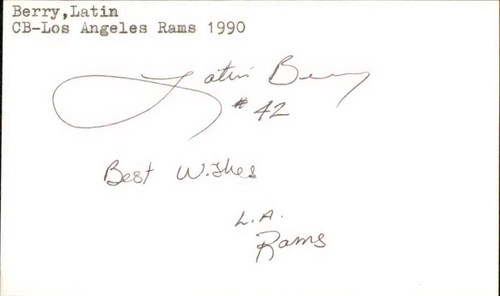 Berry,Latin
CB-Los Angeles Rams 1990
Latin Berry
#42
Best Wishes
L.A.
Rams